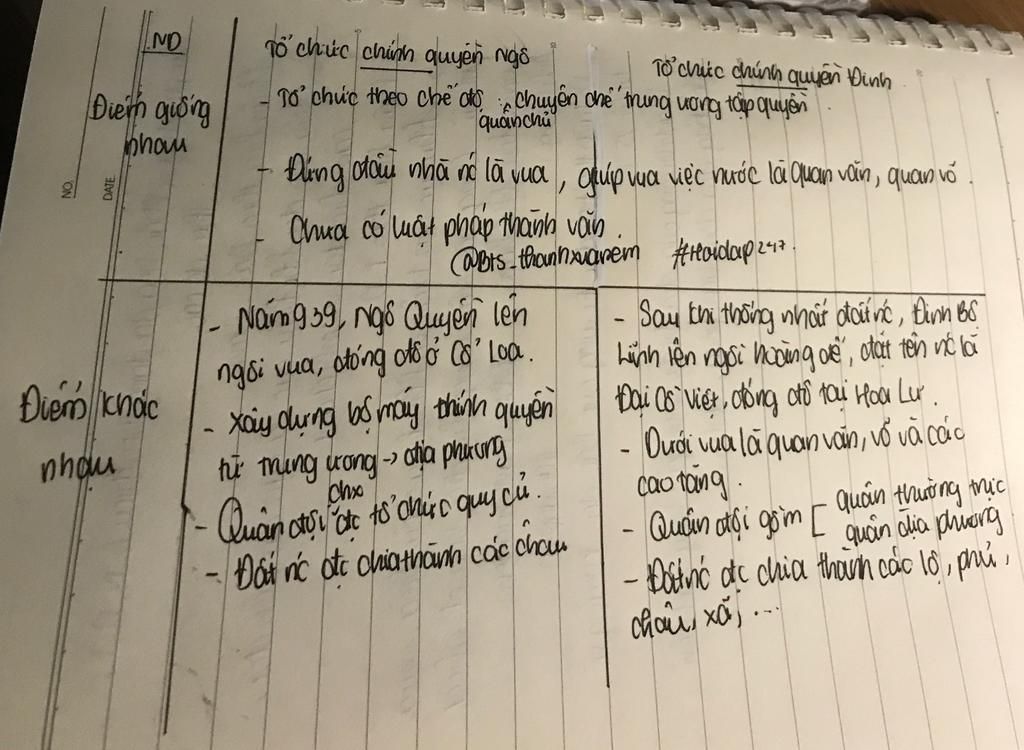 NO.
DATE
ND
Tổ chức chính quyền Ngô
Tổ chức chính quyền Đinh
Điểm giống
nhau
- Tổ chức theo chế độ quân chủ chuyên chế trung ương tập quyền
- Đứng đầu nhà nc là vua, giúp vua việc nước là quan văn, quan võ.
- Chưa có luật pháp thành văn.
@Bts_thanhxuanem #Hoidap247.
Điểm khác
nhau
- Năm 939, Ngô Quyền lên
ngôi vua, đóng đô ở Cổ Loa.
- xây dựng bộ máy chính quyền
từ trung ương -> địa phương
- Quân đội chx đc tổ chức quy củ.
- Đất nc đc chia thành các châu
- Sau khi thống nhất đất nc, Đinh Bộ
Lĩnh lên ngôi hoàng đế, đặt tên nc là
Đại Cồ Việt, đóng đô tại Hoa Lư.
- Dưới vua là quan văn, võ và các
cao tăng.
- Quân đội gồm [ quân thường trực
quân địa phương
- Đất nc đc chia thành các lộ, phủ,
châu, xã, ...